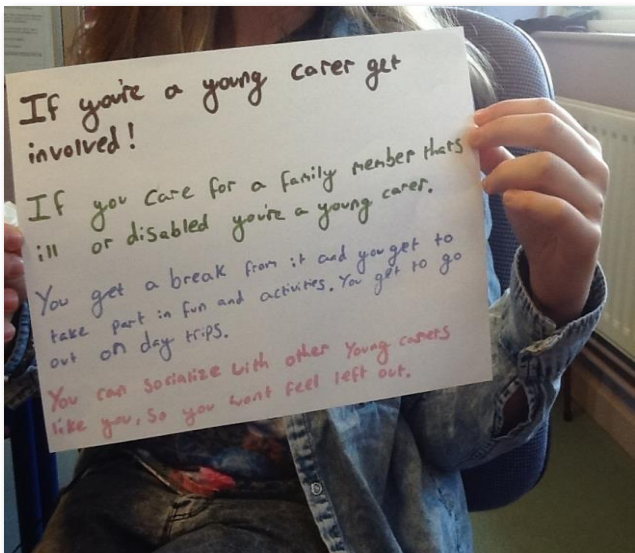 If you're a young carer get
involved!
If you care for a family member thats
ill or disabled you're a young carer.
You get a break from it and you get to
take part in fun and activities. You get to go
out on day trips.
You can socialize with other Young carers
like you, So you wont feel left out.